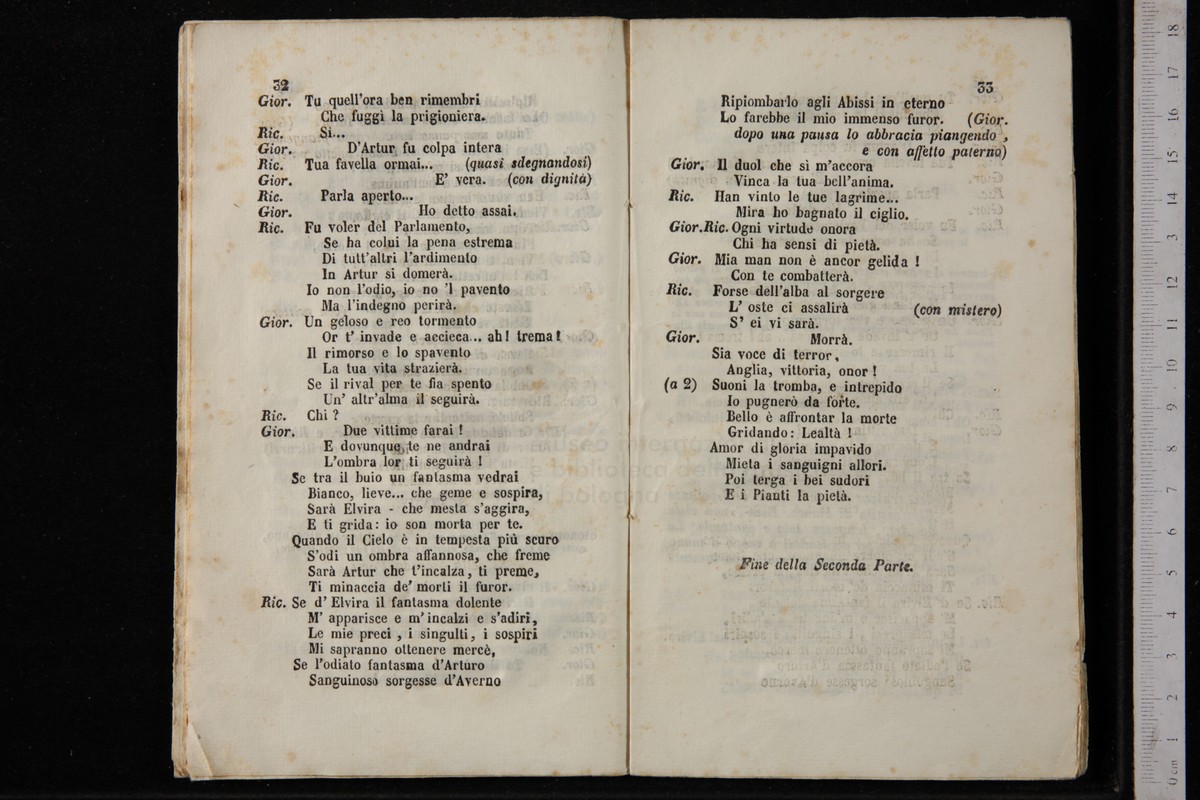 32
Gior. Tu quell'ora ben rimembri
Che fuggì la prigioniera.
Ric. Sì...
Gior. D'Artur fu colpa intera
Ric. Tua favella ormai... (quasi sdegnandosi)
Gior. E' vera. (con dignità)
Ric. Parla aperto...
Gior. Ho detto assai.
Ric. Fu voler del Parlamento,
Se ha colui la pena estrema
Di tutt'altri l'ardimento
In Artur si domerà.
Io non l'odio, io no 'l pavento
Ma l'indegno perirà.
Gior. Un geloso e reo tormento
Or t' invade e accieca... ah! trema!
Il rimorso e lo spavento
La tua vita strazierà.
Se il rival per te fia spento
Un' altr'alma il seguirà.
Ric. Chi ?
Gior. Due vittime farai !
E dovunque te ne andrai
L'ombra lor ti seguirà !
Se tra il buio un fantasma vedrai
Bianco, lieve... che geme e sospira,
Sarà Elvira - che mesta s'aggira,
E ti grida: io son morta per te.
Quando il Cielo è in tempesta più scuro
S'odi un ombra affannosa, che freme
Sarà Artur che t'incalza, ti preme,
Ti minaccia de' morti il furor.
Ric. Se d' Elvira il fantasma dolente
M' apparisce e m' incalzi e s'adiri,
Le mie preci , i singulti, i sospiri
Mi sapranno ottenere mercè,
Se l'odiato fantasma d'Arturo
Sanguinoso sorgesse d'Averno
33
Ripiombarlo agli Abissi in eterno
Lo farebbe il mio immenso furor. (Gior.
dopo una pausa lo abbracia piangendo ,
e con affetto paterno)
Gior. Il duol che sì m'accora
Vinca la tua bell'anima.
Ric. Han vinto le tue lagrime...
Mira ho bagnato il ciglio.
Gior.Ric. Ogni virtude onora
Chi ha sensi di pietà.
Gior. Mia man non è ancor gelida !
Con te combatterà.
Ric. Forse dell'alba al sorgere
L' oste ci assalirà (con mistero)
S' ei vi sarà.
Gior. Morrà.
Sia voce di terror,
Anglia, vittoria, onor !
(a 2) Suoni la tromba, e intrepido
Io pugnerò da forte.
Bello è affrontar la morte
Gridando: Lealtà !
Amor di gloria impavido
Mieta i sanguigni allori.
Poi terga i bei sudori
E i Pianti la pietà.
Fine della Seconda Parte.
0 cm 1 2 3 4 5 6 7 8 9 10 11 12 13 14 15 16 17 18